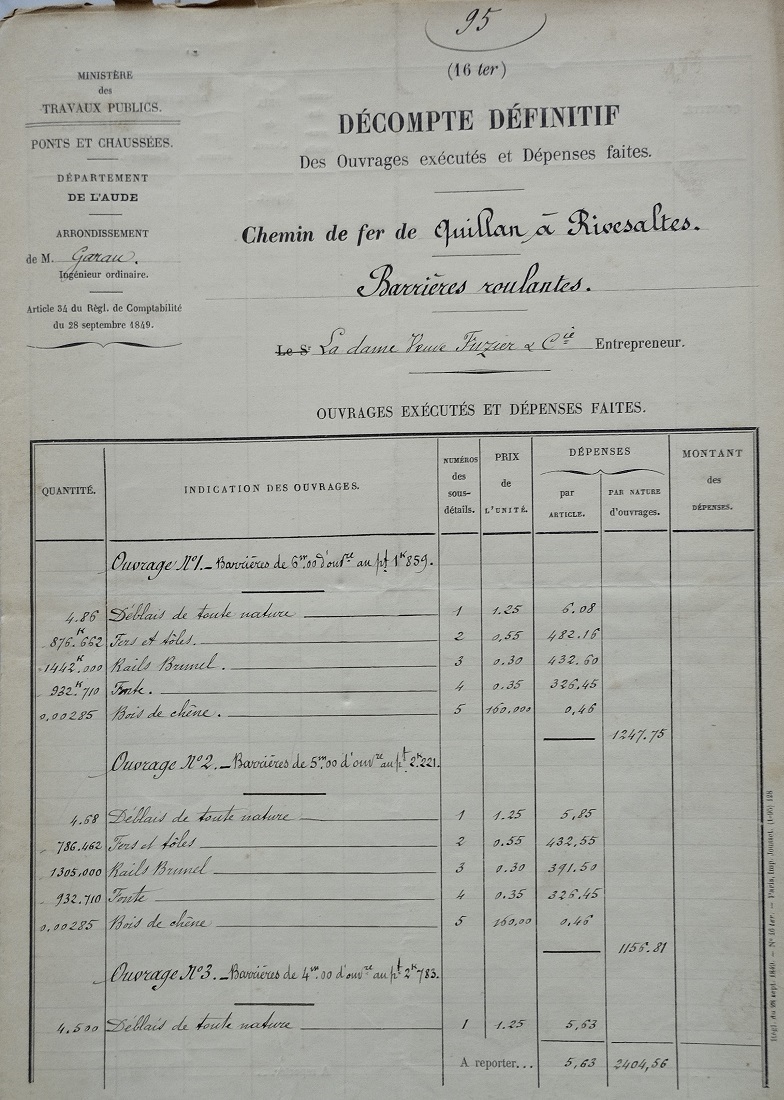 95
(16 ter)
MINISTÈRE
des
TRAVAUX PUBLICS.
PONTS ET CHAUSSÉES.
DÉPARTEMENT
DE L'AUDE
ARRONDISSEMENT
de M. Garau.
Ingénieur ordinaire.
Article 34 du Règl. de Comptabilité
du 28 septembre 1849.
DÉCOMPTE DÉFINITIF
Des Ouvrages exécutés et Dépenses faites.
Chemin de fer de Quillan à Rivesaltes.
Barrières roulantes.
Le Sr La dame Veuve Fuzier & Cie Entrepreneur.
OUVRAGES EXÉCUTÉS ET DÉPENSES FAITES.
QUANTITÉ. INDICATION DES OUVRAGES. NUMÉROS des sous-détails. PRIX de L'UNITÉ. DÉPENSES par ARTICLE. PAR NATURE d'ouvrages. MONTANT des DÉPENSES.
Ouvrage N°1. _ Barrières de 6m.00 d'ouvre au pt 1K859.
4.86 Déblais de toute nature 1 1.25 6.08
876.K662 Fers et tôles. 2 0,55 482.16
1442K.000 Rails Brunel. 3 0.30 432.60
932.K710 Fonte. 4 0.35 326.45
0,00285 Bois de chêne. 5 160,000 0,46
1247.75
Ouvrage N°2. _ Barrières de 5m.00 d'ouvre au pt 2K221.
4.68 Déblais de toute nature 1 1.25 5,85
786.462 Fers et tôles 2 0.55 432,55
1305,000 Rails Brunel 3 0.30 391.50
932.710 Fonte 4 0.35 326.45
0,00285 Bois de chêne 5 160,00 0,46
1156.81
Ouvrage N°3. _ Barrières de 4m.00 d'ouvre au pt 2K783.
4.500 Déblais de toute nature 1 1.25 5,63
A reporter... 5,63 2404,56
Règl. du 28 sept. 1849. — N° 16 ter. — Paris, Imp. Jousset.